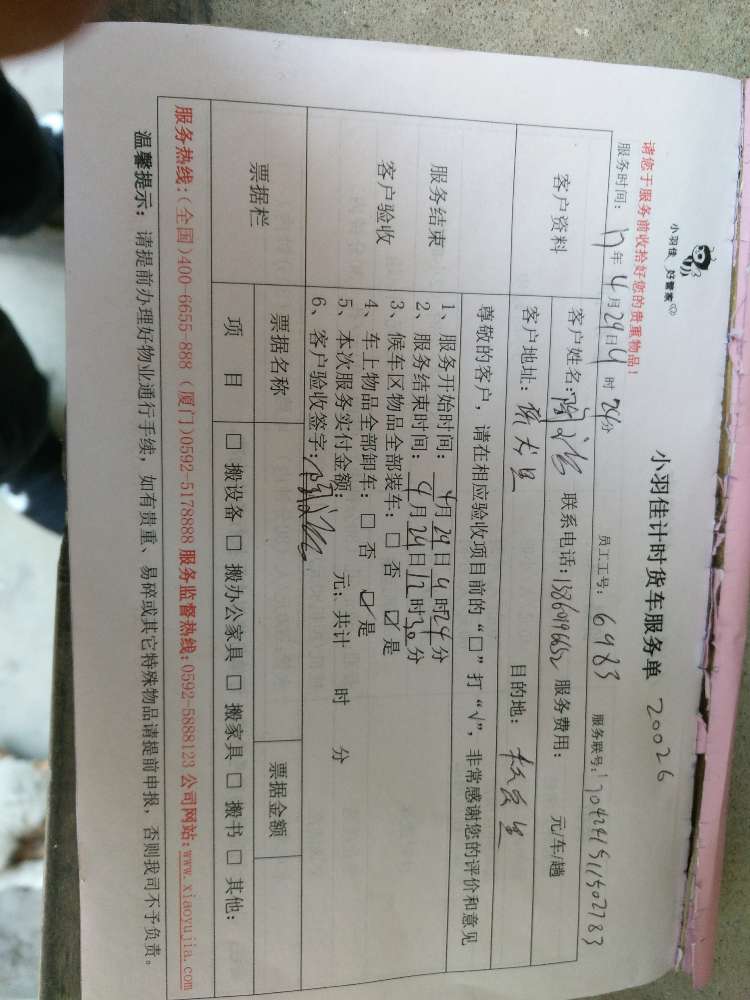 小羽佳 好管家
小羽佳计时货车服务单 20026
请您于服务前收拾好您的贵重物品！
服务时间：17年4月29日9时24分 员工工号：6983 服务联号：
客户资料
客户姓名： 联系电话：13860196652 服务费用： 元/车/趟
客户地址： 目的地：
服务结束
客户验收
尊敬的客户，请在相应验收项目前的“□”打“√”，非常感谢您的评价和意见
1、服务开始时间：4月29日9时24分
2、服务结束时间：4月29日12时30分
3、候车区物品全部装车：□ 否 ☑ 是
4、车上物品全部卸车：□ 否 ☑ 是
5、本次服务实付金额： 元；共计 时 分
6、客户验收签字：
票据栏
票据名称 票据金额
项 目 □ 搬设备 □ 搬办公家具 □ 搬家具 □ 搬书 □ 其他：
服务热线：(全国)400-6655-888 (厦门)0592-5178888 服务监督热线：0592-5888123 公司网站：www.xiaoyujia.com
温馨提示：请提前办理好物业通行手续，如有贵重、易碎或其它特殊物品请提前申报，否则我司不予负责。